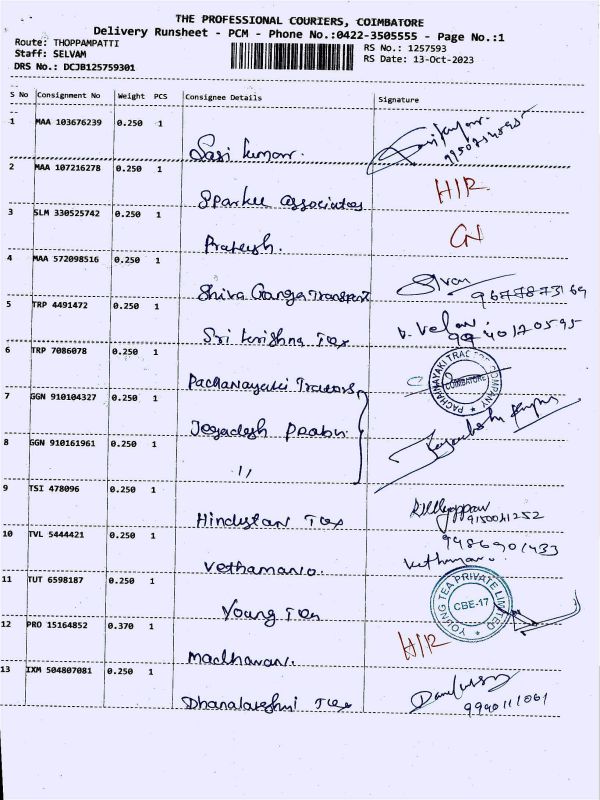 THE PROFESSIONAL COURIERS, COIMBATORE
Delivery Runsheet - PCM - Phone No.:0422-3505555 - Page No.:1
Route: THOPPAMPATTI RS No.: 1257593
Staff: SELVAM RS Date: 13-Oct-2023
DRS No.: DCJB125759301
S No Consignment No Weight PCS Consignee Details Signature
1 MAA 103676239 0.250 1
Sasi kumar.
2 MAA 107216278 0.250 1 H/R
Sparkle associates
3 SLM 330525742 0.250 1
Prateesh.
4 MAA 572098516 0.250 1
Shiva Ganga Transport 9677873169
5 TRP 4491472 0.250 1
Sri krishna Tex V. Velan 9940170595
6 TRP 7086078 0.250 1
Pachanayaki Tractors PACHANAYAKI TRACTOR COMPANY COIMBATORE
7 GGN 910104327 0.250 1
Jegadesh Prabu
8 GGN 910161961 0.250 1
"
9 TSI 478096 0.250 1
Hindustan Tex 9150041252
10 TVL 5444421 0.250 1 9486901433
Vethamani.
11 TUT 6598187 0.250 1
Young Tea YOUNG TEA PRIVATE LIMITED CBE-17
12 PRO 15164852 0.370 1 H/R
Madhavan.
13 IXM 504807081 0.250 1
Dhanalakshmi Tex 9940111061